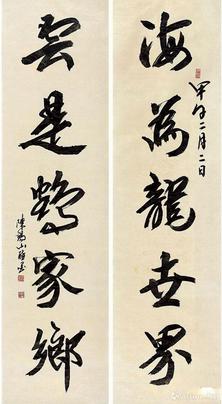 海為龍世界
甲午二月二日
雲是鶴家鄉